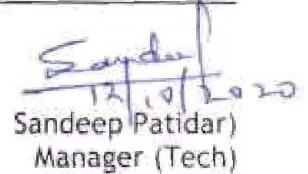 Sandeep
12/10/2020
Sandeep Patidar)
Manager (Tech)